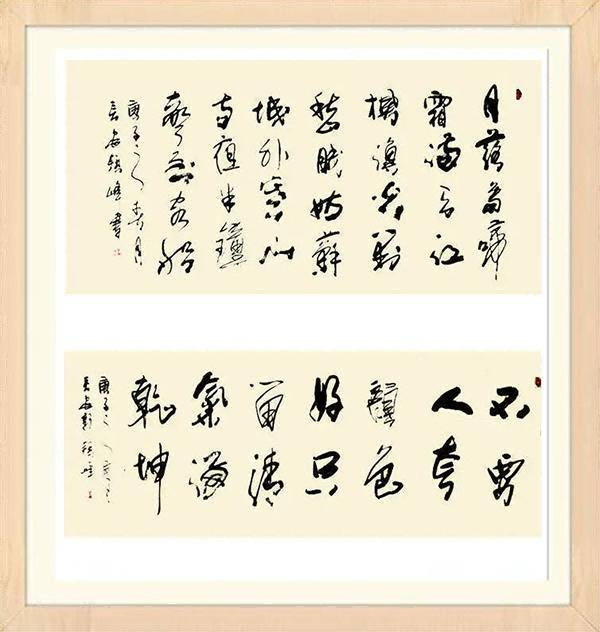 月落烏啼
霜滿天江
楓漁火對
愁眠姑蘇
城外寒山
寺夜半鐘
聲到客船
庚子之春月
長安鎮峰書
不要
人夸
顏色
好只
留清
氣滿
乾坤
庚子之
長安彭鎮峰